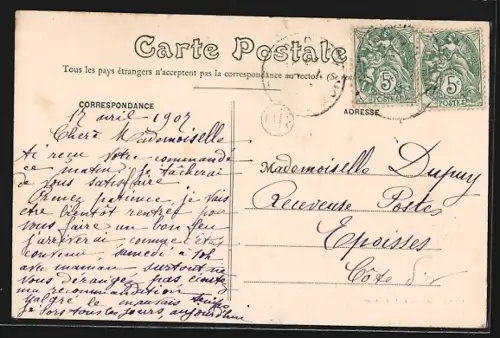 Carte Postale
Tous les pays étrangers n'acceptent pas la correspondance au recto (Se
CORRESPONDANCE
ADRESSE
17 avril 1907
Chère Mademoiselle
Ai reçu votre commande
ce matin, je tâcherai
de vous satisfaire
Prenez patience, je vais
être bientôt rentrée pour
vous faire un bon feu
j'arriverai, comme c'est
convenu, samedi à
avec maman, surtout ne
vous dérangez pas
ma recommandation
Malgré le mauvais temps
je sors tous les jours, aujourd'hui
Mademoiselle Dupuy
Receveuse Postes
Epoisses
Côte d'or
5c
POSTES
5c
POSTES